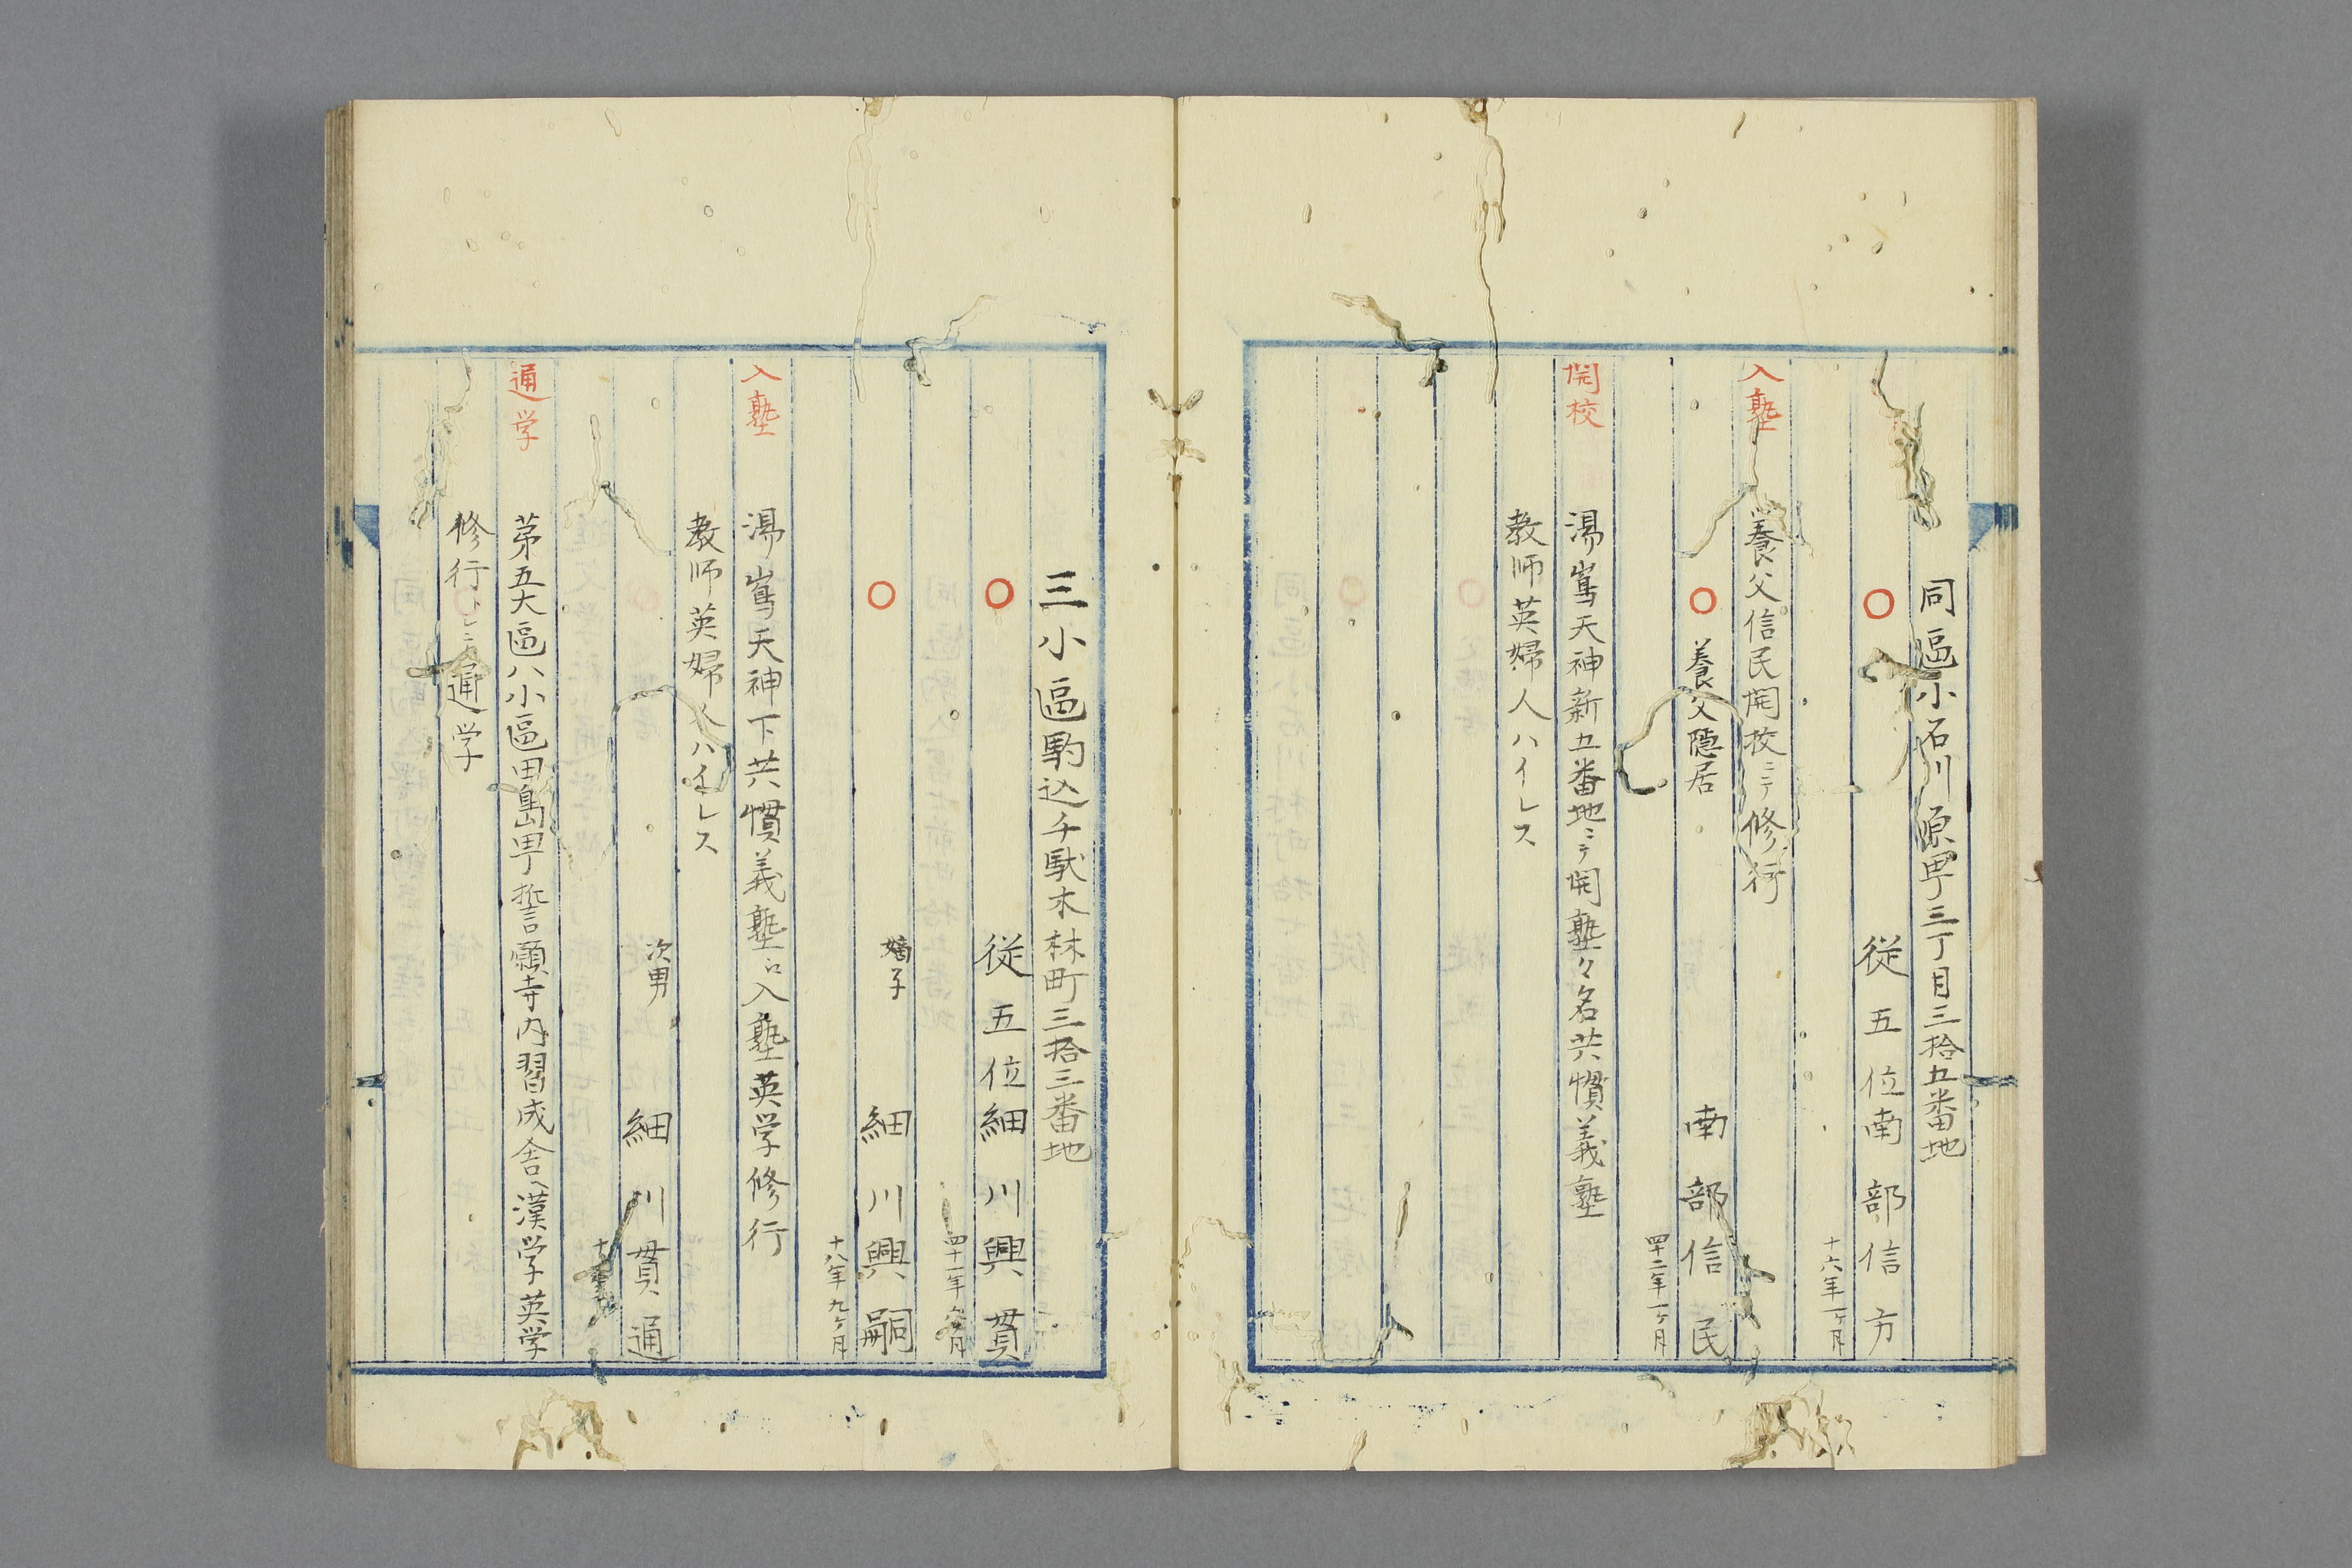 同區小石川原町三丁目三拾五番地
○ 従五位南部信方
十六年一ケ月
入塾 養父信民開校ニテ修行
○ 養父隠居 南部信民
四十二年一ケ月
開校 湯嶌天神新五番地ニテ開塾々名共慣義塾
教师英婦人ハイレス
三小區駒込千駄木林町三拾三番地
○ 従五位細川興貫
四十一年 月
○ 嫡子 細川興嗣
十八年九ケ月
入塾 湯嶌天神下共慣義塾ヱ入塾英学修行
教师英婦人ハイレス
次男 細川貫通
十
通学 苐五大區八小區田島町誓願寺内習成舎ヘ漢学英学
修行トシテ通学